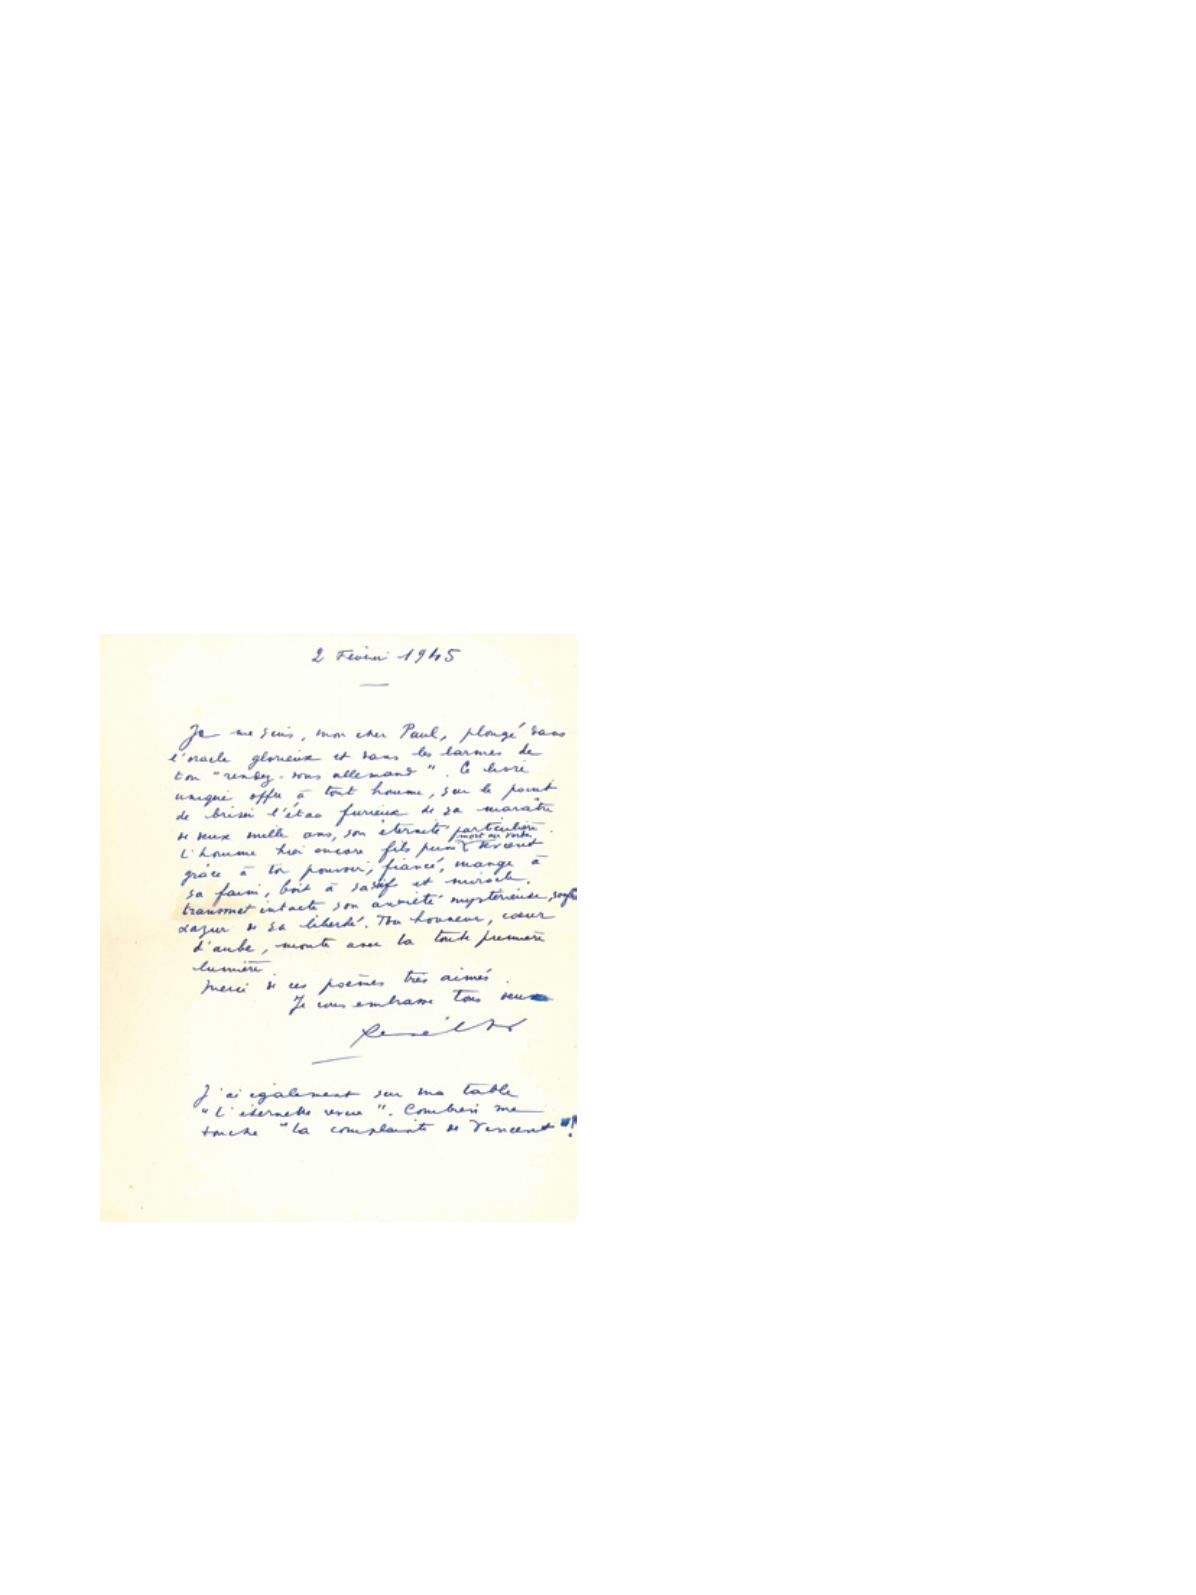 2 Février 1945
Je me suis, mon cher Paul, plongé dans
l'oracle glorieux et dans les larmes de
ton "rendez-vous allemand". Ce livre
unique offre à tout homme, sur le point
de briser l'étau furieux de sa marâtre
de deux mille ans, son éternité particulière.
L'homme hier encore fils puni mort ou devient
grâce à ton pouvoir, fiancé, mange à
sa faim, boit à sa soif et miracle,
transmet intacte son anxiété mystérieuse,
azur de sa liberté. Ton honneur, cœur
d'aube, monte avec la toute première
lumière.
Merci de ces poèmes très aimés.
Je vous embrasse tous deux
René Char
J'ai également sur ma table
"L'éternelle revue". Combien me
touche "la complainte de Vincent"!